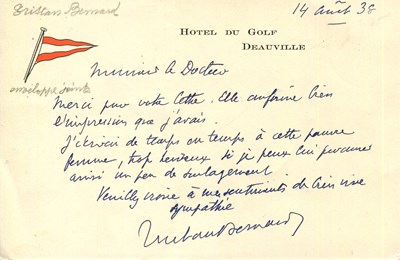 Tristan Bernard
14 août 38
HOTEL DU GOLF
DEAUVILLE
enveloppe jointe
Monsieur le Docteur
Merci pour votre lettre. Elle confirme bien
l'impression que j'avais.
J'écrirai de temps en temps à cette pauvre
femme, trop heureux si je peux lui procurer
ainsi un peu de soulagement.
Veuillez croire à mes sentiments de bien vive
sympathie
Tristan Bernard